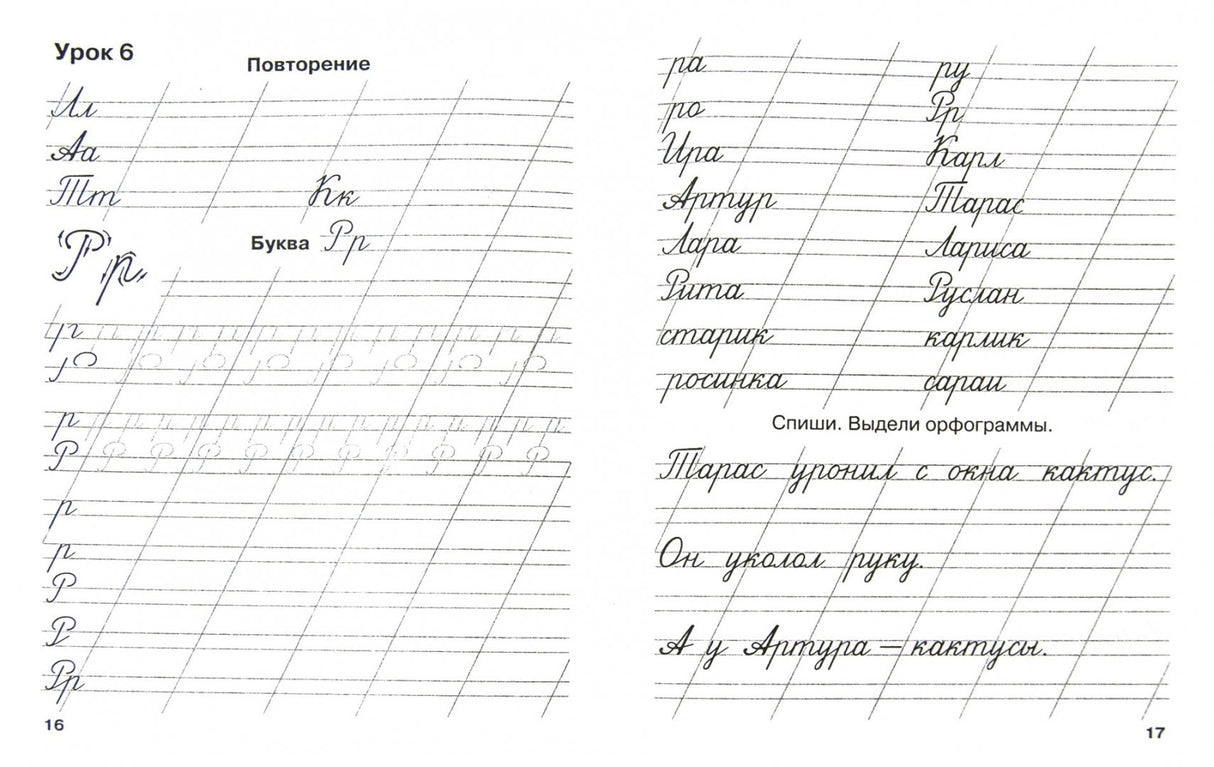 Урок 6
Повторение
Лл
Аа
Тт Кк
Рр
Буква Рр
р
Р Р Р Р Р Р Р Р Р Р Р
р
р
Р
Р
Рр
16
ра ру
ро Рр
Ира Карл
Артур Тарас
Лара Лариса
Рита Руслан
старик карлик
росинка сараи
Спиши. Выдели орфограммы.
Тарас уронил с окна кактус.
Он уколол руку.
А у Артура — кактусы.
17